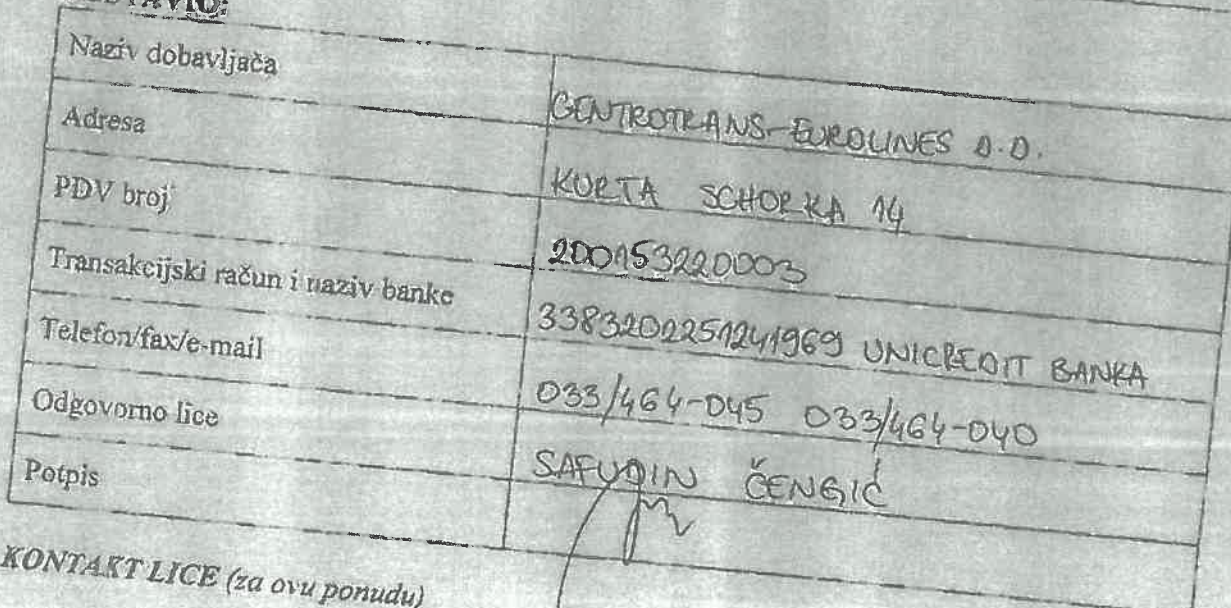 Naziv dobavljača
CENTROTRANS-EUROLINES D.D.
Adresa
KURTA SCHORKA 14
PDV broj
200153220003
Transakcijski račun i naziv banke
3383202251241969 UNICREDIT BANKA
Telefon/fax/e-mail
033/464-045 033/464-040
Odgovorno lice
SAFUDIN ČENGIĆ
Potpis
KONTAKT LICE (za ovu ponudu)